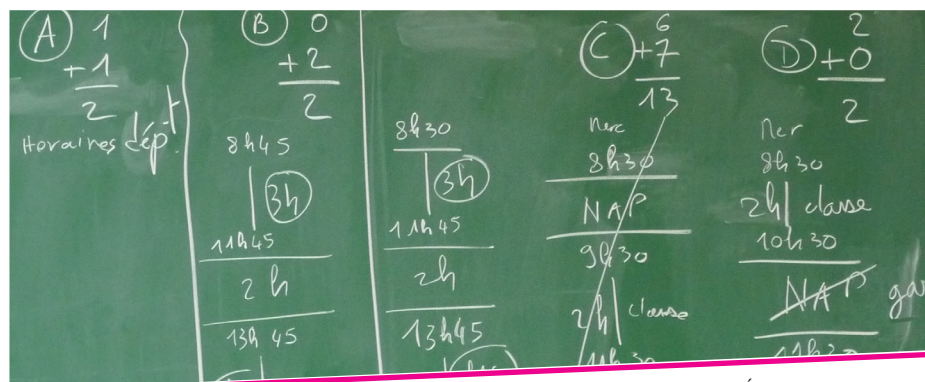 A 1
+1
2
Horaires dép.
B 0
+2
2
8h45
3h
11h45
2h
13h45
8h30
3h
11h45
2h
13h45
C 6
+7
13
Merc
8h30
NAP
9h30
2h classe
11h30
D 2
+0
2
Mer
8h30
2h classe
10h30
NAP
11h30